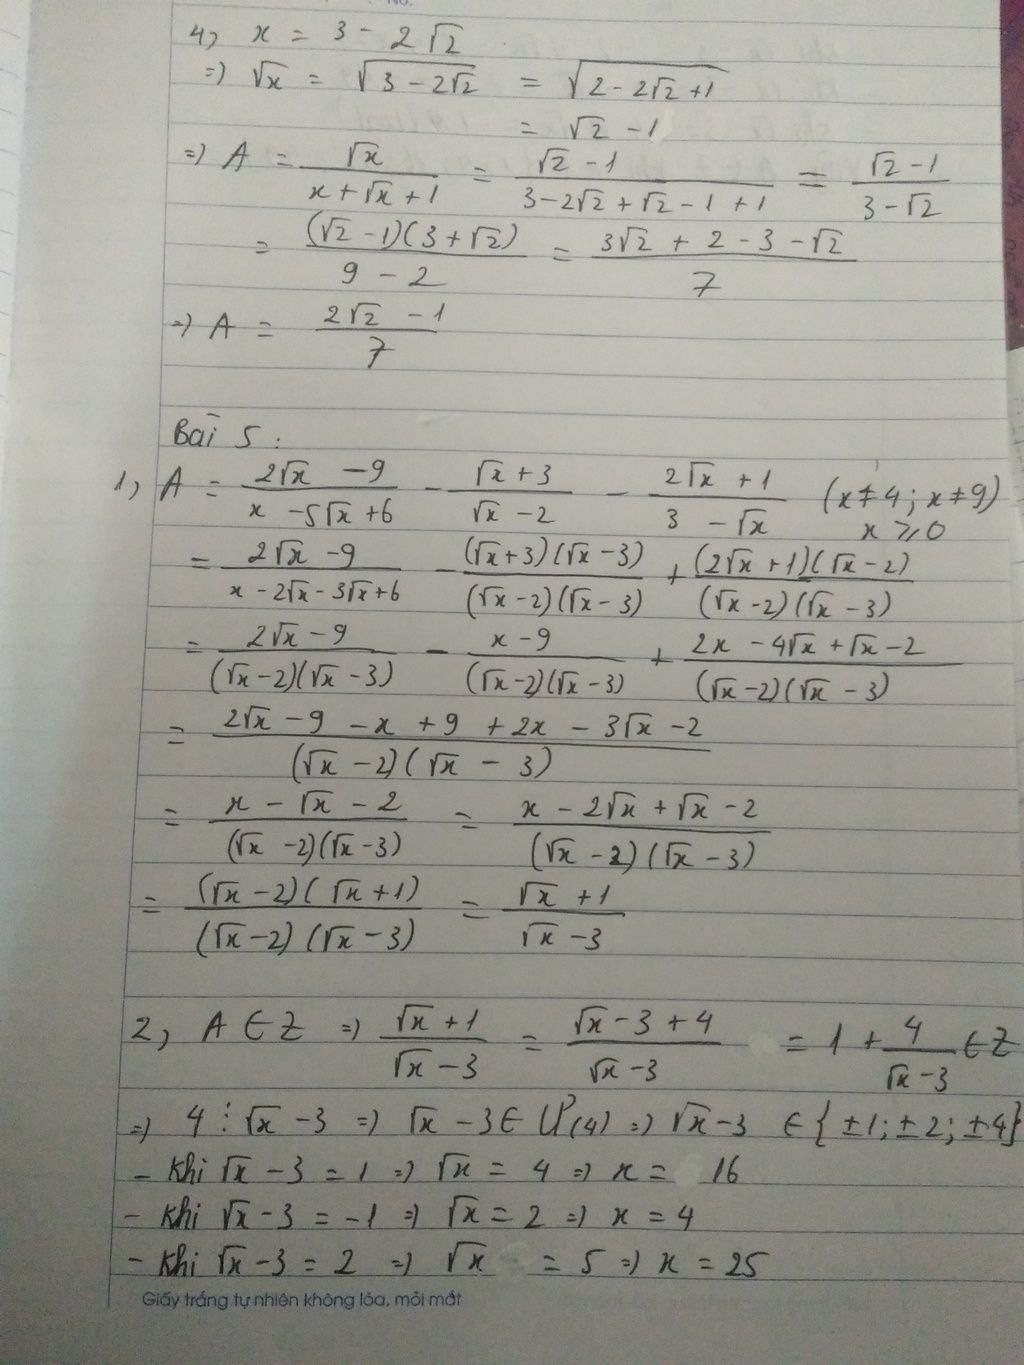 4, x = 3 - 2√2
=) √x = √(3 - 2√2) = √(2 - 2√2 + 1)
= √2 - 1
=) A = √x/(x + √x + 1) = (√2 - 1)/(3 - 2√2 + √2 - 1 + 1) = (√2 - 1)/(3 - √2)
= (√2 - 1)(3 + √2)/(9 - 2) = (3√2 + 2 - 3 - √2)/7
=) A = (2√2 - 1)/7
Bài 5 :
1, A = (2√x - 9)/(x - 5√x + 6) - (√x + 3)/(√x - 2) - (2√x + 1)/(3 - √x) (x ≠ 4 ; x ≠ 9)
x ⩾ 0
= (2√x - 9)/(x - 2√x - 3√x + 6) - (√x + 3)(√x - 3)/(√x - 2)(√x - 3) + (2√x + 1)(√x - 2)/(√x - 2)(√x - 3)
= (2√x - 9)/(√x - 2)(√x - 3) - (x - 9)/(√x - 2)(√x - 3) + (2x - 4√x + √x - 2)/(√x - 2)(√x - 3)
= (2√x - 9 - x + 9 + 2x - 3√x - 2)/(√x - 2)(√x - 3)
= (x - √x - 2)/(√x - 2)(√x - 3) = (x - 2√x + √x - 2)/(√x - 2)(√x - 3)
= (√x - 2)(√x + 1)/(√x - 2)(√x - 3) = (√x + 1)/(√x - 3)
2, A ∈ Z =) (√x + 1)/(√x - 3) = (√x - 3 + 4)/(√x - 3) = 1 + 4/(√x - 3) ∈ Z
=) 4 ⋮ √x - 3 =) √x - 3 ∈ Ư(4) =) √x - 3 ∈ {±1; ±2; ±4}
- Khi √x - 3 = 1 =) √x = 4 =) x = 16
- Khi √x - 3 = -1 =) √x = 2 =) x = 4
- Khi √x - 3 = 2 =) √x = 5 =) x = 25
Giấy trắng tự nhiên không lóa, mỏi mắt